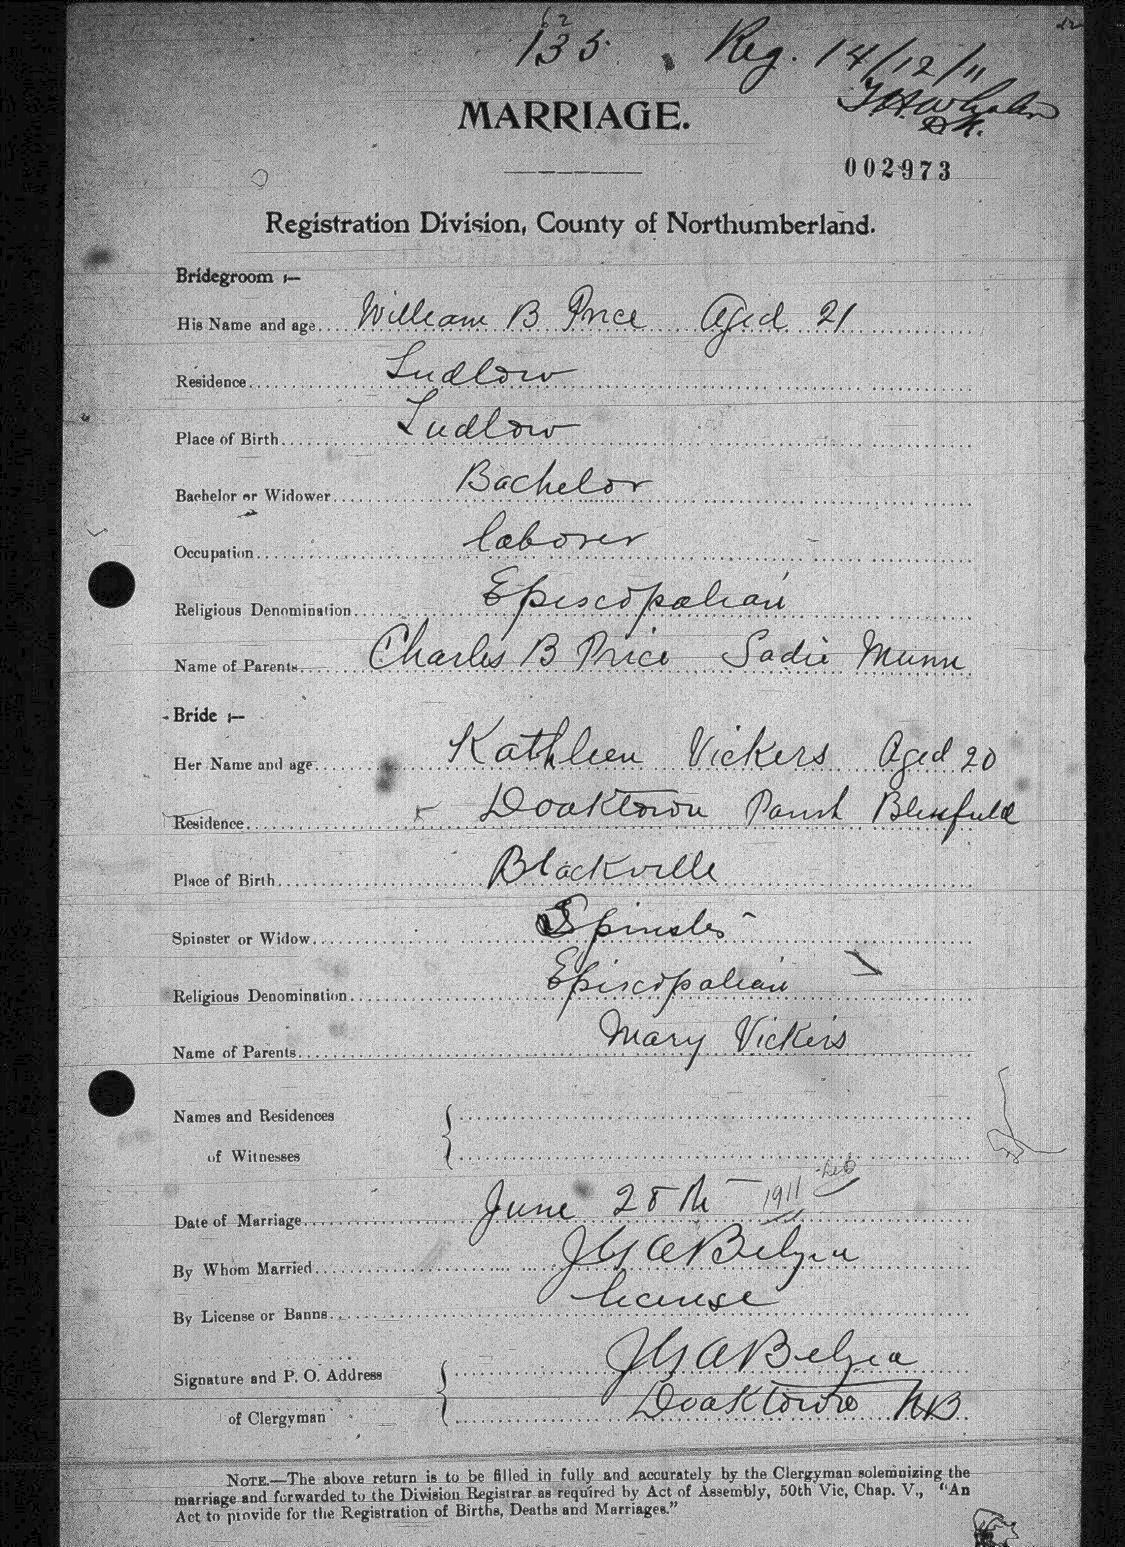 135. Reg. 14/12/11
MARRIAGE.
002973
Registration Division, County of Northumberland.
Bridegroom :—
His Name and age.... William B Price Aged 21
Residence.... Ludlow
Place of Birth.... Ludlow
Bachelor or Widower.... Bachelor
Occupation.... laborer
Religious Denomination.... Episcopalian
Name of Parents.... Charles B Price Sadie Munn
Bride :—
Her Name and age.... Kathleen Vickers Aged 20
Residence.... Doaktown Parish Blissfield
Place of Birth.... Blackville
Spinster or Widow.... Spinster
Religious Denomination.... Episcopalian
Name of Parents.... Mary Vickers
Names and Residences
of Witnesses
Date of Marriage.... June 28th 1911
By Whom Married.... J G A Belyea
By License or Banns.... license
Signature and P. O. Address J G A Belyea
of Clergyman Doaktown NB.
NOTE.—The above return is to be filled in fully and accurately by the Clergyman solemnizing the
marriage and forwarded to the Division Registrar as required by Act of Assembly, 50th Vic, Chap. V., "An
Act to provide for the Registration of Births, Deaths and Marriages."